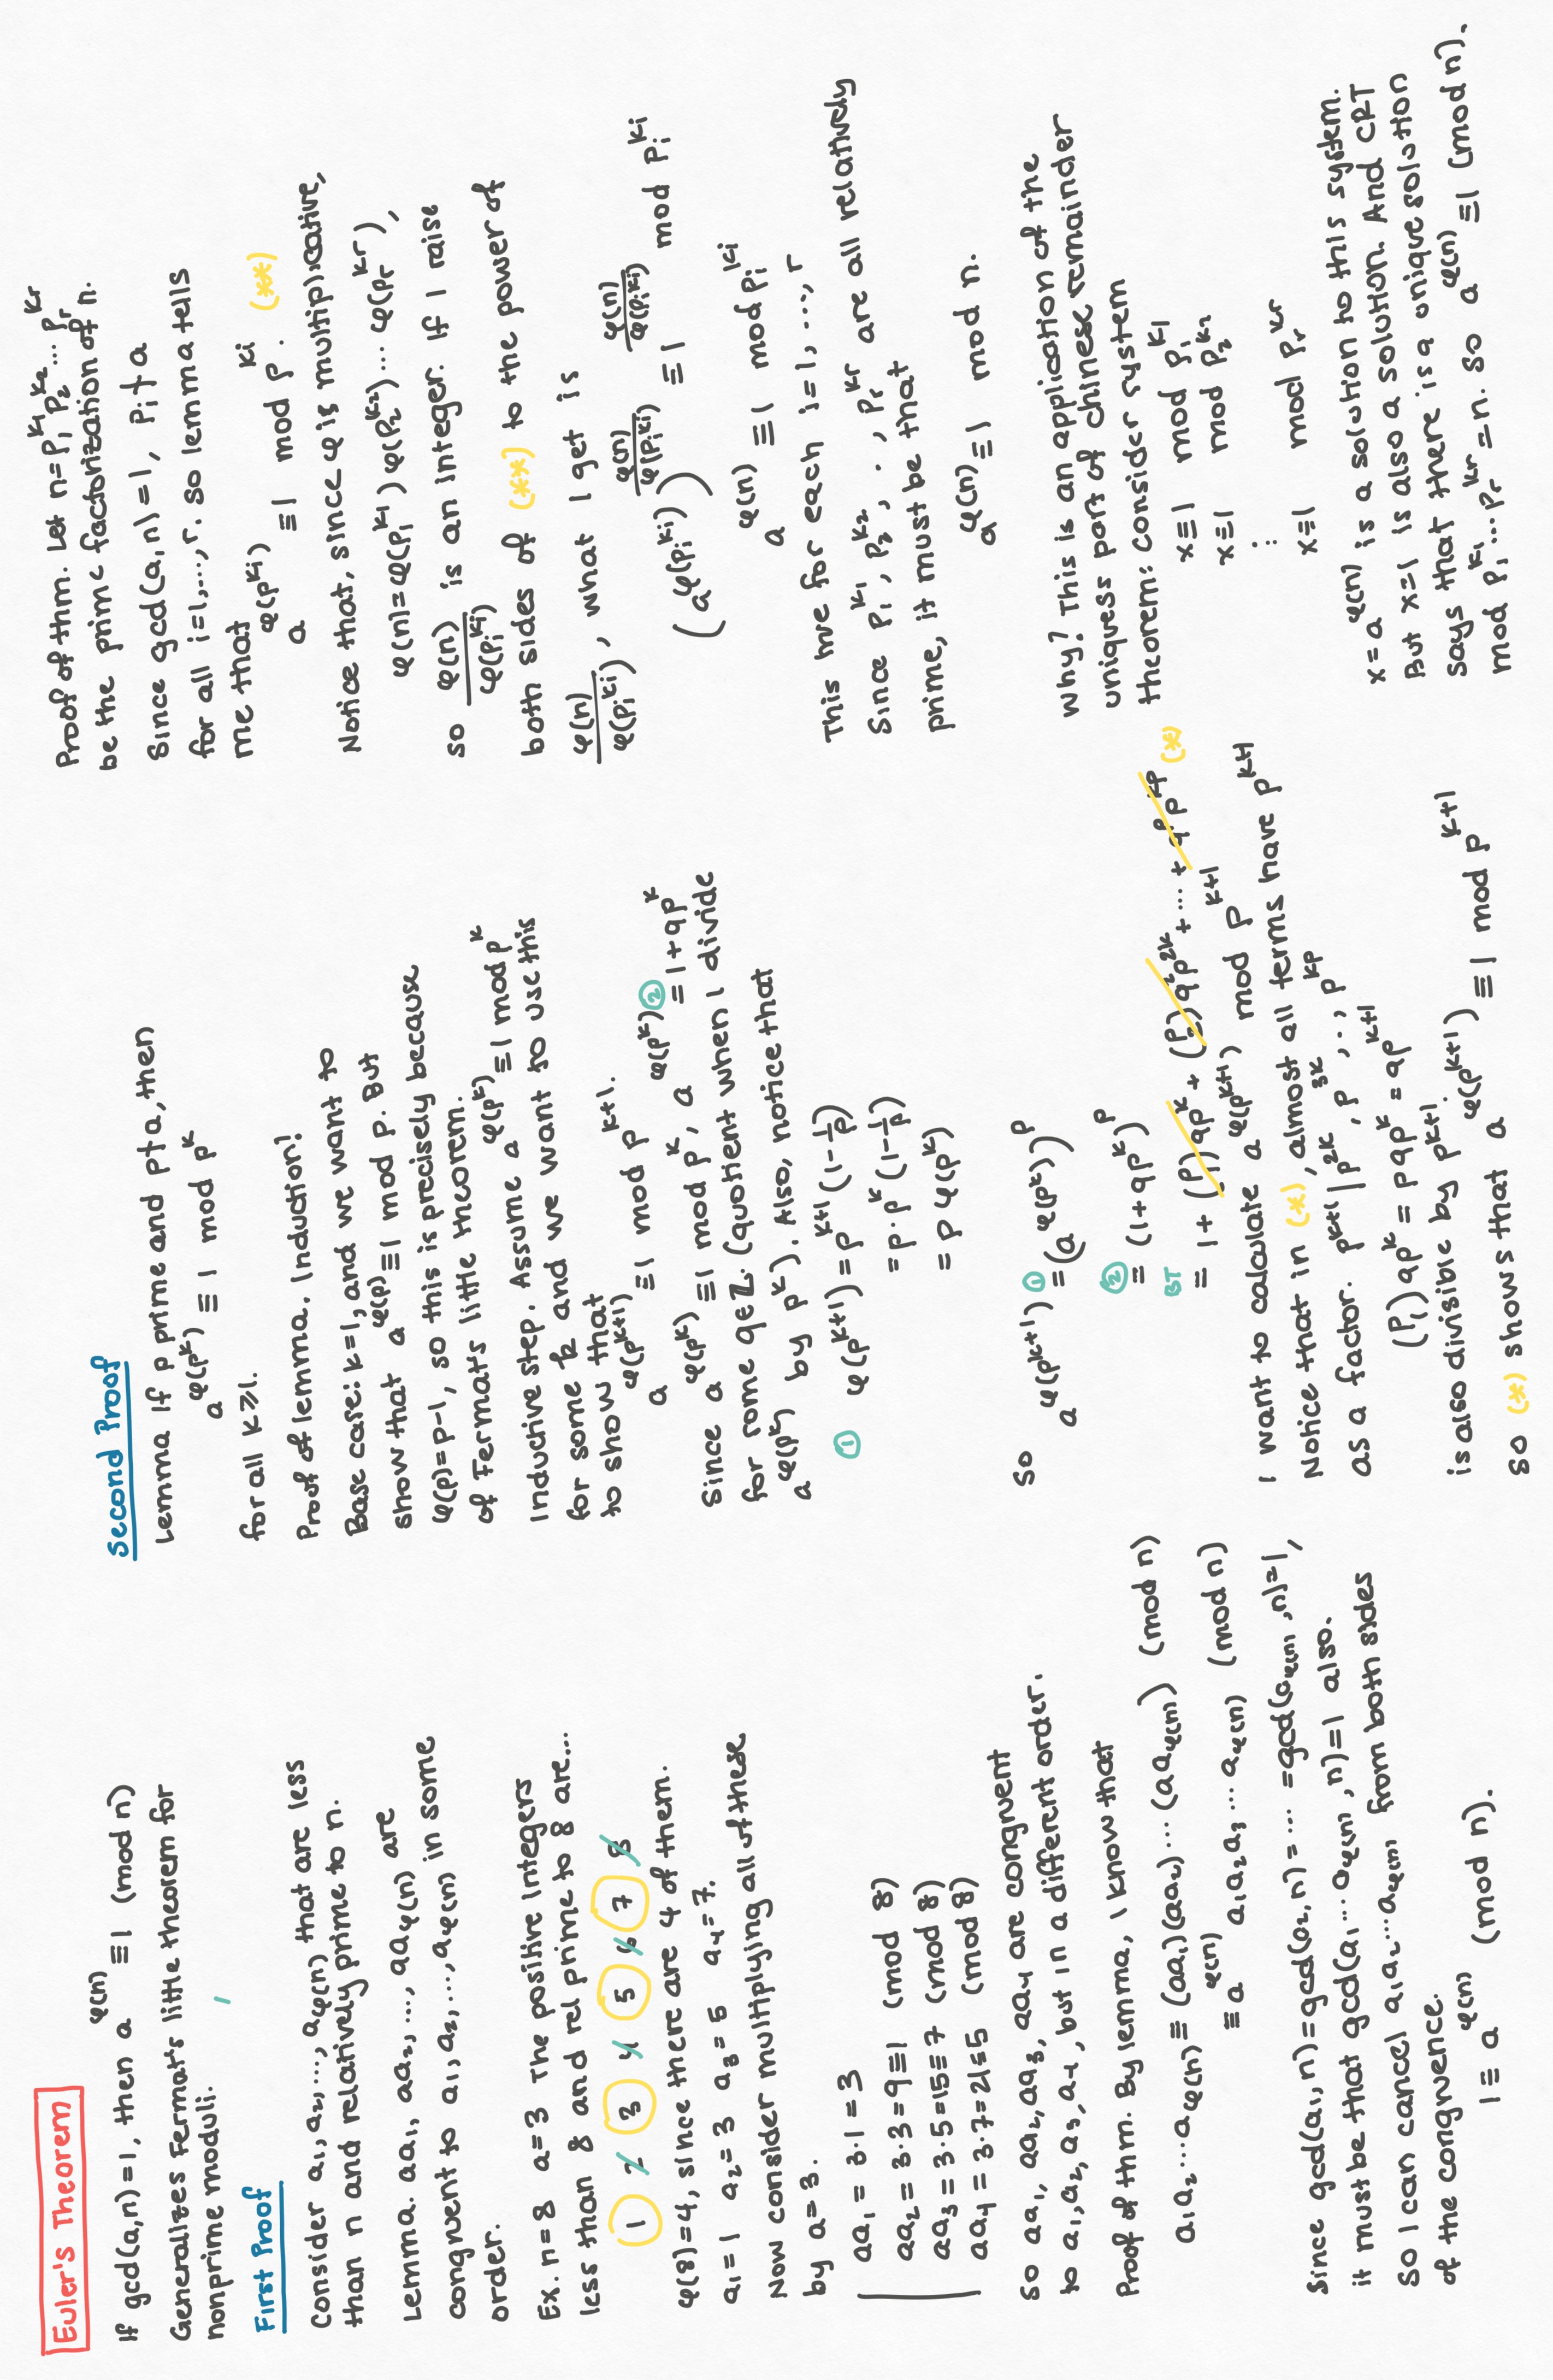 Euler's Theorem
If gcd(a,n)=1, then a^φ(n) ≡1 (mod n)
Generalizes Fermat's little theorem for
nonprime moduli.
First Proof
Consider a₁, a₂, ..., a_φ(n) that are less
than n and relatively prime to n.
Lemma. aa₁, aa₂, ..., aa_φ(n) are
congruent to a₁, a₂, ..., a_φ(n) in some
order.
Ex. n=8 a=3 The positive integers
less than 8 and rel prime to 8 are...
1 2 3 4 5 6 7 8
φ(8)=4, since there are 4 of them.
a₁=1 a₂=3 a₃=5 a₄=7.
Now consider multiplying all of these
by a=3.
aa₁ = 3·1 = 3
aa₂ = 3·3=9≡1 (mod 8)
aa₃ = 3·5=15≡7 (mod 8)
aa₄ = 3·7=21≡5 (mod 8)
So aa₁, aa₂, aa₃, aa₄ are congruent
to a₁, a₂, a₃, a₄, but in a different order.
Proof of thm. By lemma, I know that
a₁a₂...a_φ(n) ≡ (aa₁)(aa₂)...(aa_φ(n)) (mod n)
≡ a^φ(n) a₁a₂a₃...a_φ(n) (mod n)
Since gcd(a₁,n)=gcd(a₂,n)=...=gcd(a_φ(n),n)=1,
it must be that gcd(a₁...a_φ(n),n)=1 also.
So I can cancel a₁a₂...a_φ(n) from both sides
of the congruence.
1≡ a^φ(n) (mod n).
Second Proof
Lemma If p prime and p∤a, then
a^φ(p^k) ≡ 1 mod p^k
for all k≥1.
Proof of lemma. Induction!
Base case: k=1, and we want to
show that a^φ(p) ≡1 mod p. But
φ(p)=p-1, so this is precisely because
of Fermat's little theorem.
Inductive step. Assume a^φ(p^k) ≡1 mod p^k
for some k and we want to use this
to show that
a^φ(p^(k+1)) ≡1 mod p^(k+1).
Since a^φ(p^k) ≡1 mod p^k, a^φ(p^k) ② = 1+qp^k
for some q∈ℤ. (quotient when I divide
a^φ(p^k) by p^k). Also, notice that
① φ(p^(k+1)) = p^(k+1) (1-1/p)
= p·p^k (1-1/p)
= p φ(p^k)
So
a^φ(p^(k+1)) ① = (a^φ(p^k))^p
② = (1+qp^k)^p
BT = 1 + (p 1)qp^k + (p 2)q²p^(2k) + ... + q^p p^(kp) (*)
I want to calculate a^φ(p^(k+1)) mod p^(k+1)
Notice that in (*), almost all terms have p^(k+1)
as a factor. p^(k+1) | p^(2k), p^(3k), .., p^(kp)
(p 1) qp^k = pqp^k = qp^(k+1)
is also divisible by p^(k+1).
So (*) shows that a^φ(p^(k+1)) ≡1 mod p^(k+1)
Proof of thm. Let n=p₁^k₁ p₂^k₂ ... p_r^k_r
be the prime factorization of n.
Since gcd(a,n)=1, p_i∤a
for all i=1,...,r. So lemma tells
me that
a^φ(p^k_i) ≡1 mod p^k_i. (**)
Notice that, since φ is multiplicative,
φ(n)=φ(p₁^k₁) φ(p₂^k₂)... φ(p_r^k_r),
so φ(n)/φ(p_i^k_i) is an integer. If I raise
both sides of (**) to the power of
φ(n)/φ(p_i^k_i), what I get is
(a^φ(p_i^k_i))^(φ(n)/φ(p_i^k_i)) ≡ 1^(φ(n)/φ(p_i^k_i)) mod p_i^k_i
a^φ(n) ≡1 mod p_i^k_i
This true for each i=1, ..., r
Since p₁^k₁, p₂^k₂, . , p_r^k_r are all relatively
prime, it must be that
a^φ(n) ≡1 mod n.
Why? This is an application of the
uniqess part of chinese remainder
theorem: consider system
x≡1 mod p₁^k₁
x≡1 mod p₂^k₂
⋮
x≡1 mod p_r^k_r
x=a^φ(n) is a solution to this system.
But x=1 is also a solution. And CRT
says that there is a unique solution
mod p₁^k₁...p_r^k_r =n. So a^φ(n) ≡1 (mod n).